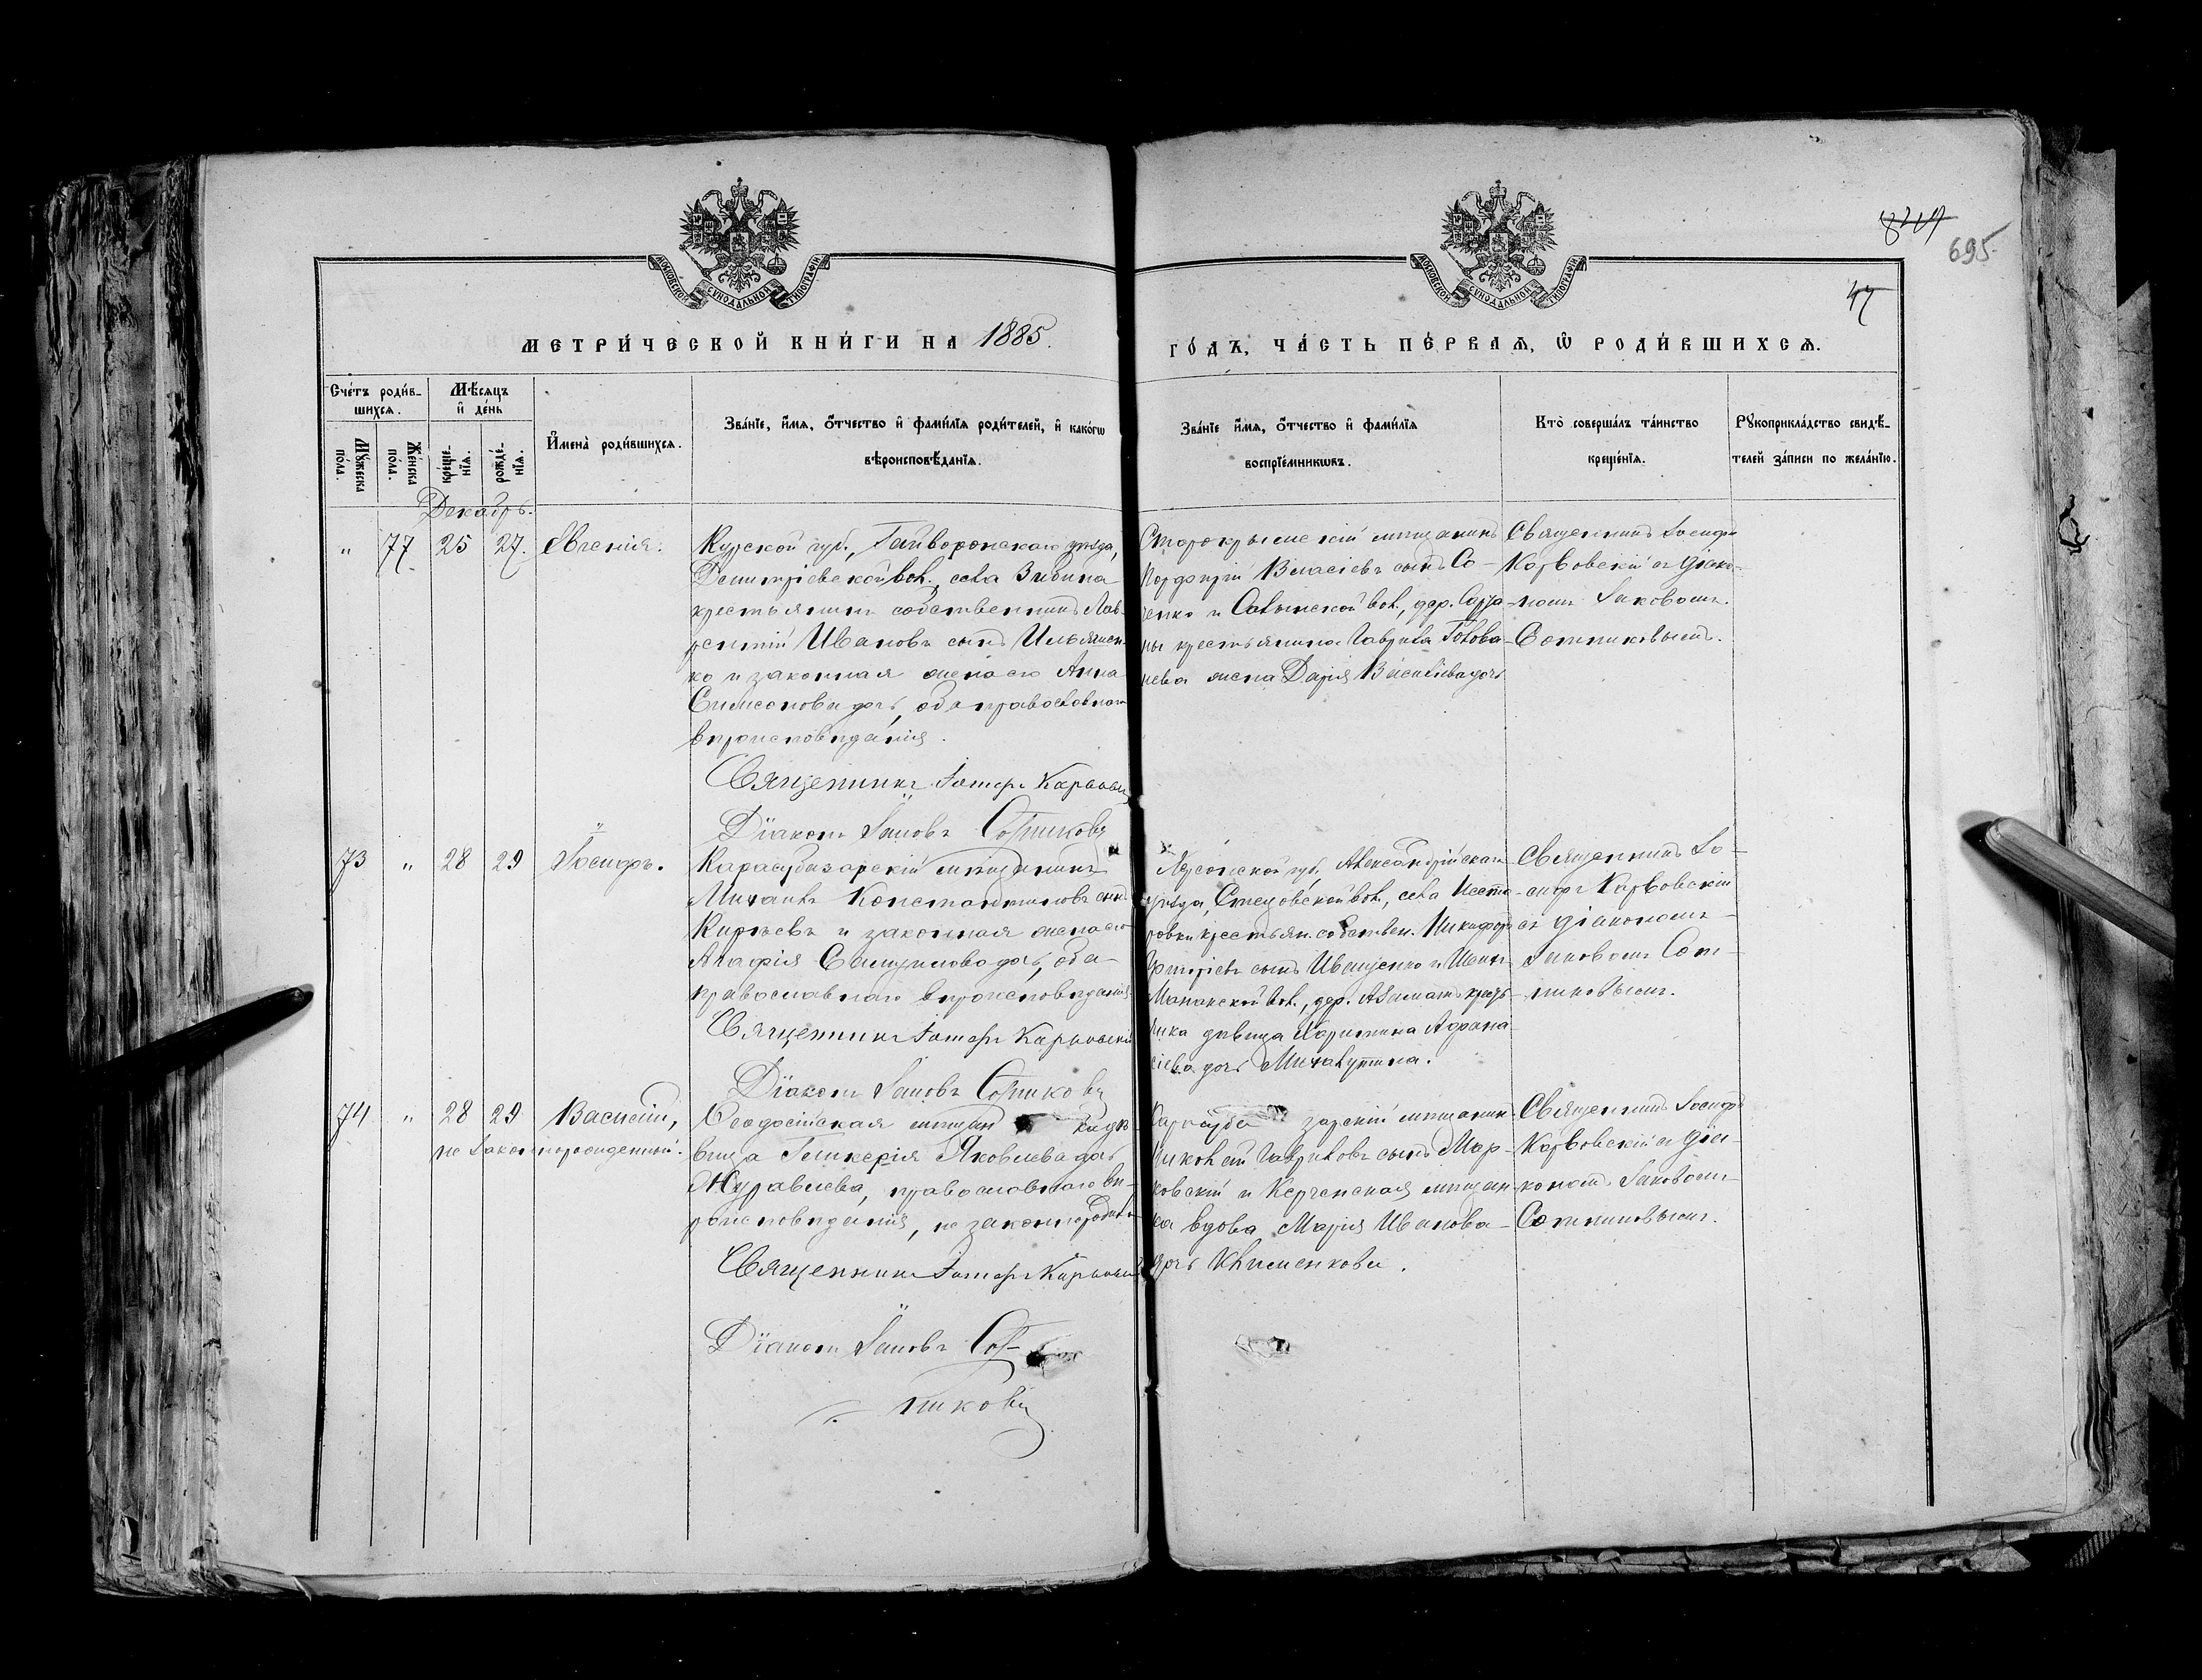 МОСКОВСКОЙ СУНОДАЛЬНОЙ ТИПОГРАФІИ
МОСКОВСКОЙ СУНОДАЛЬНОЙ ТИПОГРАФІИ
695.
47
МЕТРИ́ЧЕСКОЙ КНИ́ГИ НА 1885.
ГО́ДЪ, ЧА́СТЬ ПЕ́РВАѦ, Ѡ РОДИ́ВШИХСѦ.
Сче́тъ роди́в-
шихсѧ.
Мѣ́сѧцъ
и҆ де́нь
Му́жеска
по́ла.
Же́нска
по́ла.
креще́-
нїѧ.
рожде́-
нїѧ.
И҆мена̀ роди́вшихсѧ.
Зва́нїе, и҆́мѧ, ѻ҆́тчество и҆ фами́лїѧ роди́телей, и҆ како́гѡ
вѣроисповѣ́данїѧ.
Зва́нїе и҆́мѧ, ѻ҆́тчество и҆ фами́лїѧ
воспрїе́мникѡвъ.
Кто̀ соверша́лъ та́инство
креще́нїѧ.
Рꙋкоприкла́дство свидѣ́-
телей за́писи по жела́нїю.
Декабрь.
" 77 25 27. Евгенія.
Курской губ., Гайворонскаго уѣзда,
Димитріевской вол., села Зибина
крестьянинъ собственникъ Лав-
рентій Ивановъ сынъ Ильяшен-
ко и законная жена его Анна
Симеонова дочь, оба православнаго
вѣроисповѣданія.
Священникъ Іосифъ Карвовскій
Діаконъ Іаковъ Сотниковъ
Старокрымскій мѣщанинъ
Порфирій Власіевъ сынъ Со-
ченко и Салынской вол., дер.
ны крестьянина Гавріила Голова-
нева жена Дарія Васильева дочь
Священникъ Іосифъ
Карвовскій съ діако-
номъ Іаковомъ
Сотниковымъ.
73 " 28 29 Іосифъ.
Карасубазарскій мѣщанинъ
Михаилъ Константиновъ сынъ
Кирѣевъ и законная жена его
Агафія Самуилова дочь, оба
православнаго вѣроисповѣданія
Священникъ Іосифъ Карвовскій
Діаконъ Іаковъ Сотниковъ
Херсонской губ. Александрійскаго
уѣзда, Стецовской вол., села Несте-
ровки крестьян. собствен. Никифоръ
сынъ Иващенко и Шейхъ-
Манайской вол., дер. крестья-
нка дѣвица Харитина Афана-
сіева дочь
Священникъ Іо-
сифъ Карвовскій
съ діакономъ
Іаковомъ Сот-
никовымъ.
74 " 28 29 Василій,
не законнорожденный.
Ѳеодосійская мѣщанка дѣ-
вица Гликерія Яковлева дочь
Журавлева, православнаго вѣ-
роисповѣданія, не законнородила
Священникъ Іосифъ Карвовскій
Діаконъ Іаковъ Сот-
никовъ
Карасубазарскій мѣщанинъ
Николай Гавриловъ сынъ Мар-
ковскій и Керченская мѣщан-
ка вдова Марія Иванова
дочь Клименкова.
Священникъ Іосифъ
Карвовскій съ діа-
кономъ Іаковомъ
Сотниковымъ.